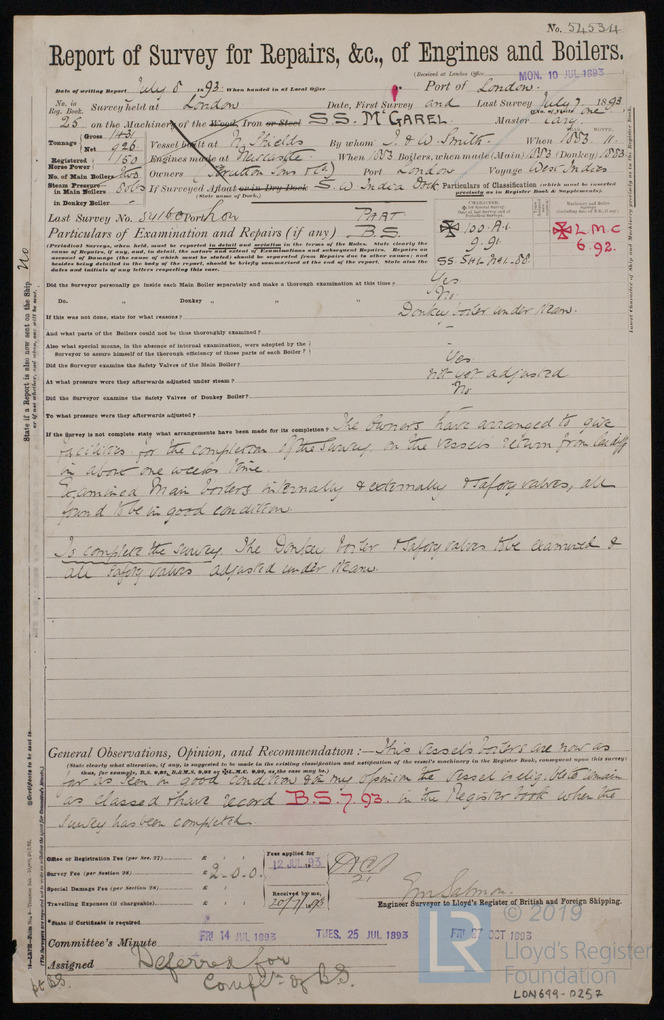 No. 54534
Report of Survey for Repairs, &c., of Engines and Boilers.
(Received at London Office MON. 10 JUL 1893
Date of writing Report July 8 1893 When handed in at Local Office Port of London.
No. in Reg. Book. Survey held at London Date, First Survey and Last Survey July 7 1893
25 on the Machinery of the Wood, Iron or Steel S.S. McGAREL Master
Tonnage Gross 1431 Net 926 Vessel built at N. Shields By whom T. & W. Smith. When 1883 11
Registered Horse Power 150 Engines made at Newcastle When 1883 Boilers, when made (Main) 1883 (Donkey) 1883
No. of Main Boilers two Owners Scrutton Sons & Co Port London Voyage West Indies
Steam Pressure in Main Boilers 80lbs If Surveyed Afloat or in Dry Dock S. W. India Dock
(State name of Dock.)
in Donkey Boiler
Particulars of Classification (which must be inserted precisely as in Register Book & Supplements).
Last Survey No. 54160 Port Lon PART
Particulars of Examination and Repairs (if any) B.S.
100.A.1.
9.91.
SS
L.M.C
6.92.
(Periodical Surveys, when held, must be reported in detail and seriatim in the terms of the Rules. State clearly the
cause of Repairs, if any, and, in detail, the nature and extent of Examinations and subsequent Repairs. Repairs on
account of Damage (the cause of which must be stated) should be separated from Repairs due to other causes; and
besides being detailed in the body of the report, should be briefly summarised at the end of the report. State also the
dates and initials of any letters respecting this case.
Did the Surveyor personally go inside each Main Boiler separately and make a thorough examination at this time? Yes
Do. " Donkey " " " No
If this was not done, state for what reasons? Donkey boiler under steam.
And what parts of the Boilers could not be thus thoroughly examined? -
Also what special means, in the absence of internal examination, were adopted by the
Surveyor to assure himself of the thorough efficiency of those parts of each Boiler? -
Did the Surveyor examine the Safety Valves of the Main Boiler? Yes
At what pressure were they afterwards adjusted under steam? not yet adjusted
Did the Surveyor examine the Safety Valves of Donkey Boiler? No
To what pressure were they afterwards adjusted?
If the Survey is not complete state what arrangements have been made for its completion? The Owners have arranged to give
facilities for the completion of the Survey, on the vessel's return from Cardiff
in about one weeks time.
Examined Main boilers internally & externally & safety valves, all
found to be in good condition
To complete the survey The Donkey boiler & safety valves to be examined &
all safety valves adjusted under steam.
State if a Report is also now sent on the Ship No
or if not, whether, and when, one will be sent.
General Observations, Opinion, and Recommendation:— This vessel's boilers are now as
(State clearly what alteration, if any, is suggested to be made in the existing classification and notification of the vessel's machinery in the Register Book, consequent upon this survey:
thus, for example, B.S. 9,92, B.&M.S. 9,92 or L.M.C. 9,92, as the case may be.)
far as seen in good condition & in my opinion the vessel is eligible to remain
as classed & have record B.S. 7.93. in the Register Book when the
survey has been completed
Office or Registration Fee (per Sec. 27) £
Survey Fee (per Section 28) £ 2.0.0.
Special Damage Fee (per Section 28) £
Travelling Expenses (if chargeable) £
Fees applied for
12 JUL 93
Received by me,
20/7/1893
Engineer Surveyor to Lloyd's Register of British and Foreign Shipping.
State if Certificate is required
Committee's Minute FRI 14 JULY 1893 TUES. 25 JUL 1893 FRI 27 OCT 1893
Assigned Deferred for
Compln of B.S.
© 2019
LR Lloyd's Register
Foundation
LON699-0257